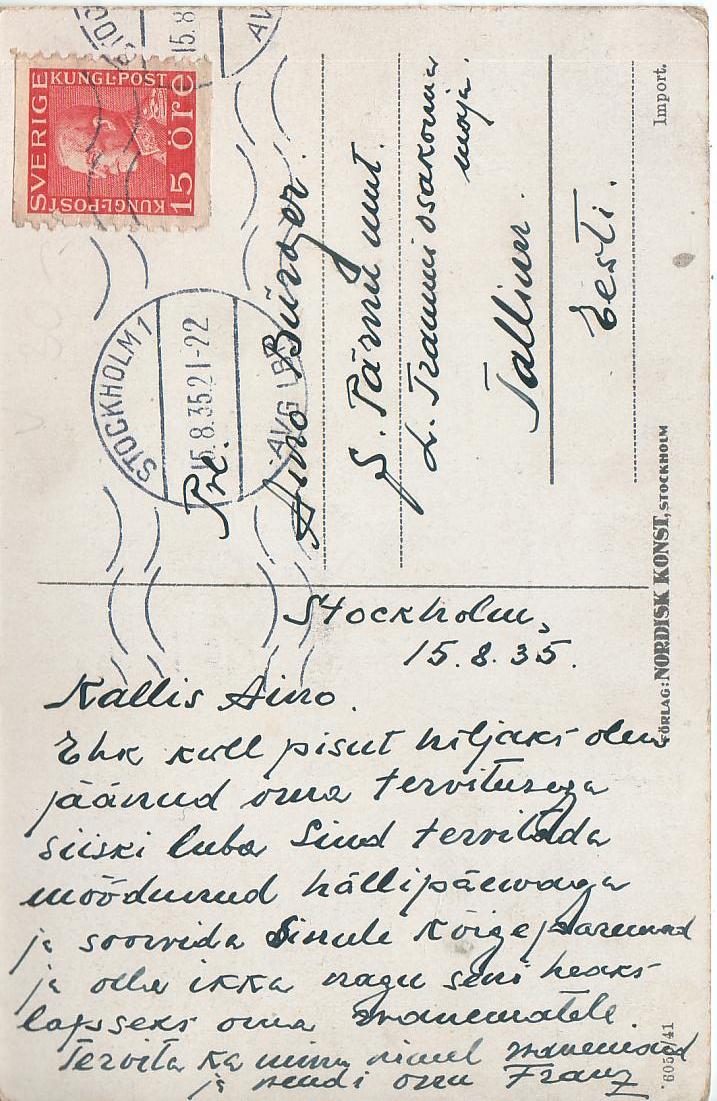 SVERIGE
KUNGL·POST
15 öre
KUNGL·POST
STOCKHOLM 1
15.8.35.21-22
AVG LBR
Prl.
Aino Bürger.
S. Pärnu mnt.
L. Trammi osakonna
maja.
Tallinn.
Eesti.
Import.
FÖRLAG: NORDISK KONST, STOCKHOLM
6050/41
Stockholm,
15.8.35.
Kallis Aino.
Ehk küll pisut hiljaks olen
jäänud oma tervitusega
siiski luba Sind tervitada
möödunud hällipäevaga
ja soovida Sinule kõige paremad
ja olla ikka nagu seni heaks
lapseks oma vanematele.
Tervita ka minu nimel vanemaid
ja nendi onu Franz